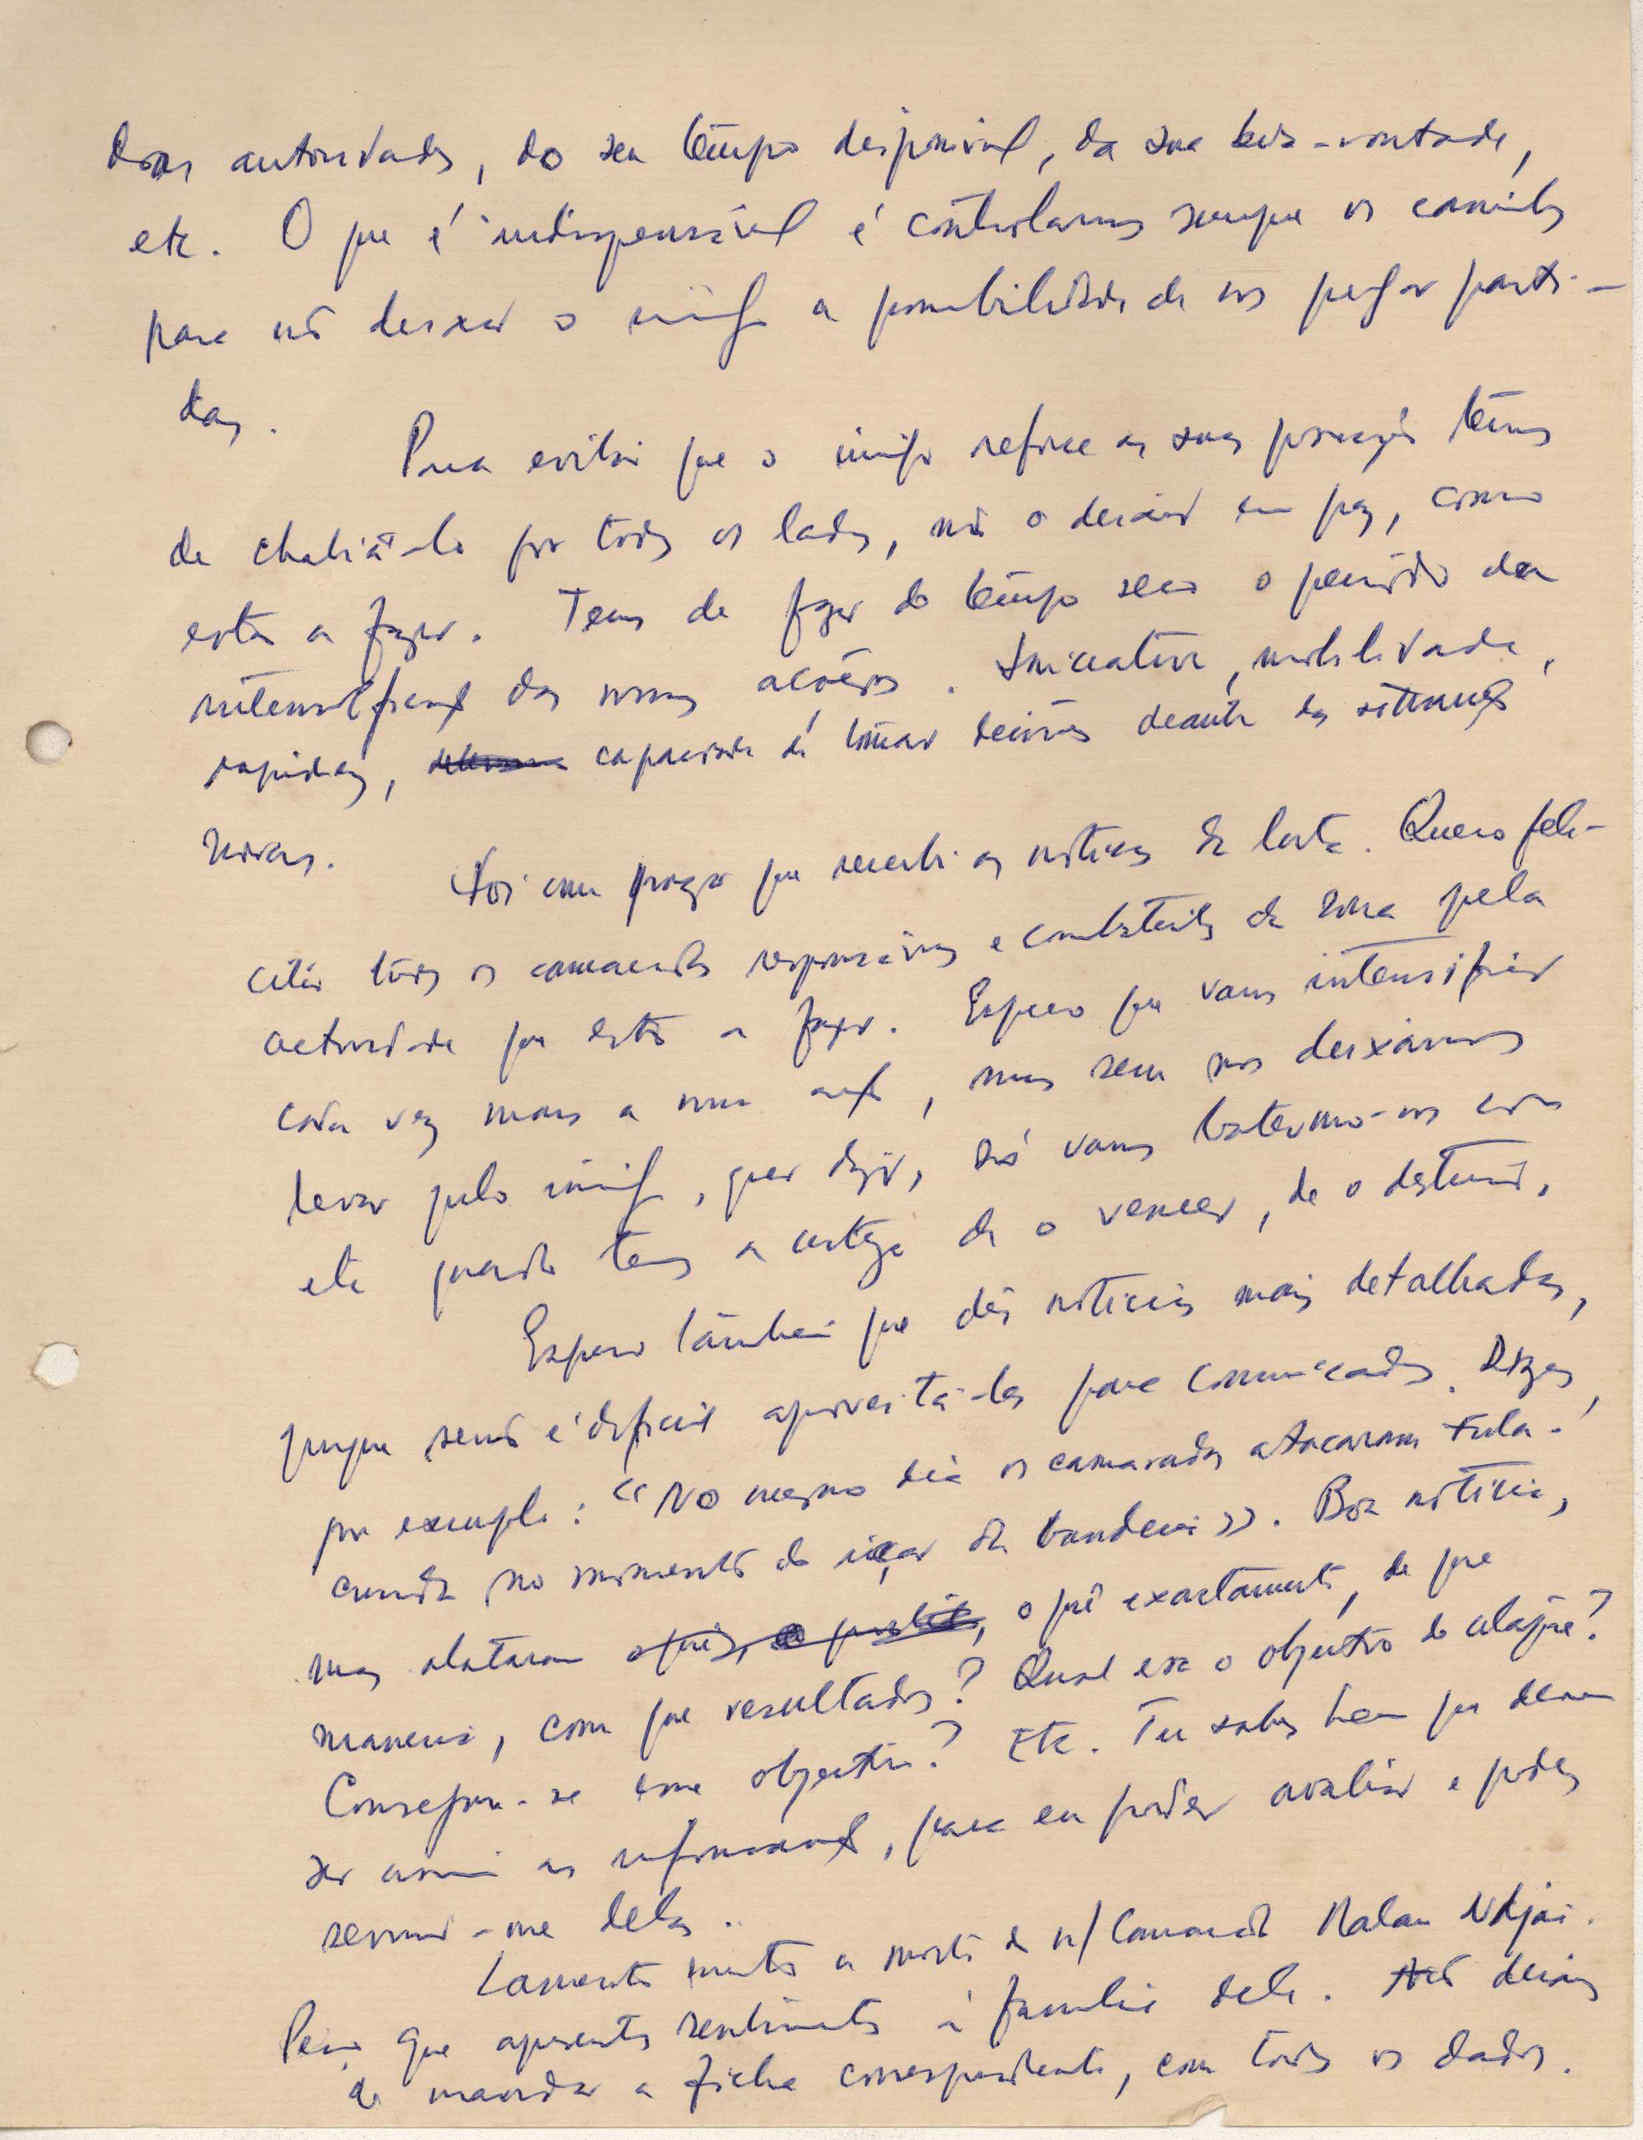 autoridades, do seu tempo disponivel, da sua boa-vontade,
etc. O que é indispensável é controlarmos sempre os caminhos
para não deixar o inimigo a possibilidade de nos pregar parti-
das.
Para evitar que o inimigo reforce as suas posições temos
de chateá-lo por todos os lados, não o deixar em paz, como
estás a fazer. Temos de fazer do tempo sêco o período da
intensificação das nossas acções. Iniciativa, mobilidade,
rapidez, capacidade de tomar decisões deante das situações
novas.
Foi com prazer que recebi as notícias da luta. Quero feli-
citar todos os camaradas responsáveis e combatentes da zona pela
actividade que estão a fazer. Espero que vamos intensificar
cada vez mais a nossa acção, mas sem nos deixarmos
levar pelo inimigo, quer dizer, só vamos batermo-nos com
ele quando temos a certeza de o vencer, de o destruir.
Espero também que dês notícias mais detalhadas,
porque senão é difícil aproveitá-las para comunicados. Dizes,
por exemplo: "No mesmo dia os camaradas atacaram Fula-
cunda no momento do içar da bandeira». Boa notícia,
mas atacaram o quê exactamente, de que
maneira, com que resultados? Qual era o objectivo do ataque?
Conseguiu-se esse objectivo? Etc. Tu sabes bem que devem
ser assim as informações, para eu poder avaliar e poder
servir-me delas.
Lamento muito a morte do n/ Camarada Malan Ndjai.
Peço que apresentes sentimentos à família dele. Não deixes
de mandar a ficha correspondente, com todos os dados.